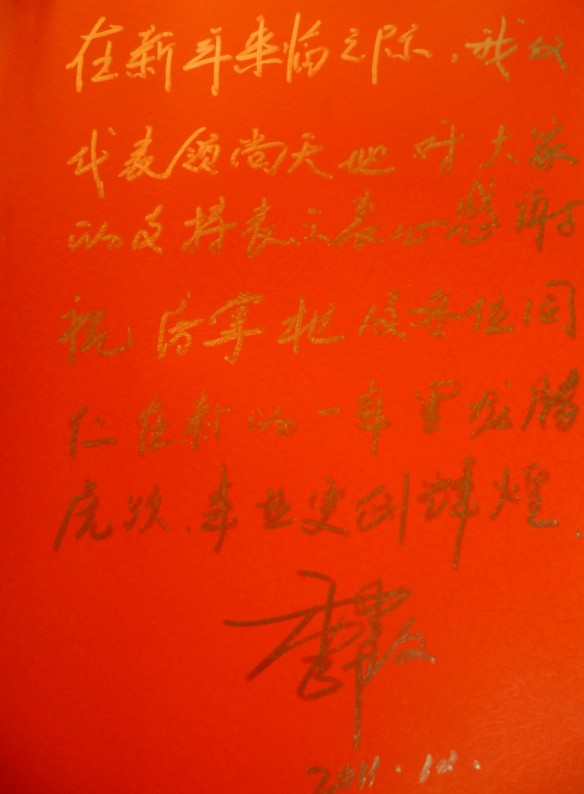 在新年来临之际，我仅
代表领尚天地对大家
的支持表示衷心感谢
祝 掌柜及各位同
仁在新的一年里龙腾
虎跃、事业更创辉煌.
2011.12.